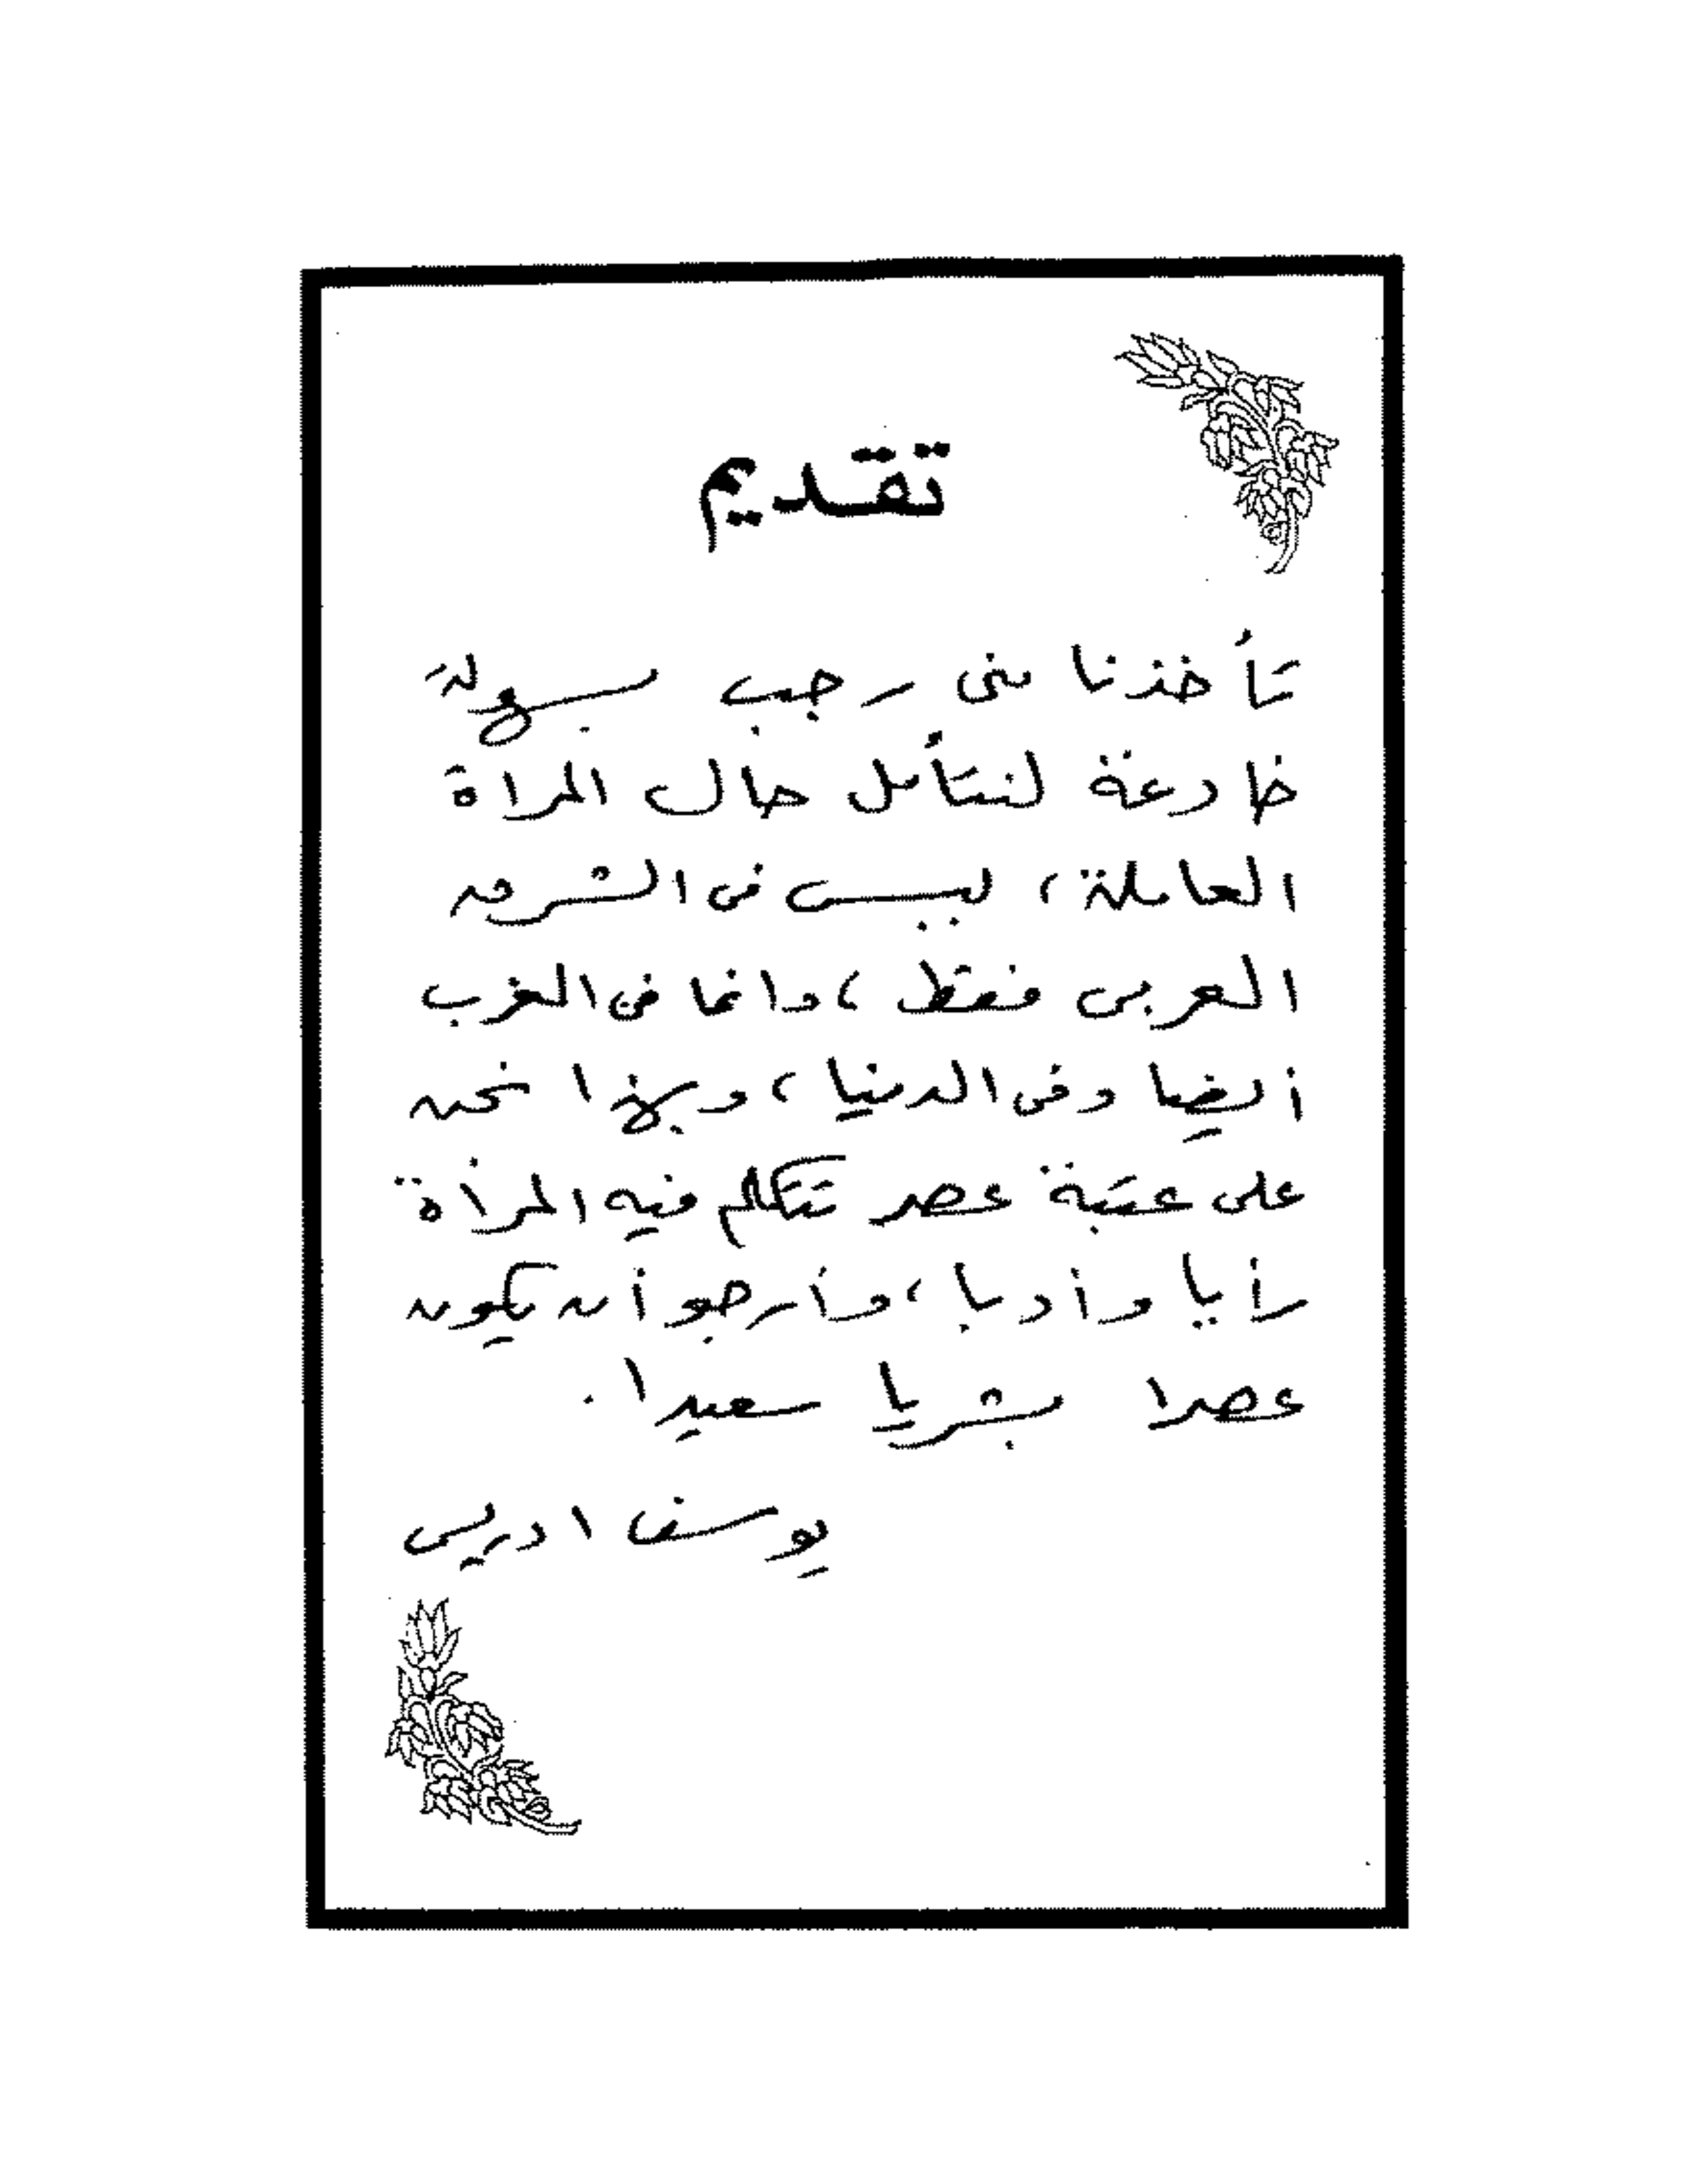 تقديم
تأخذنا منى رجب بسهولة
خادعة لنتأمل حال المراة
العاملة، ليس فى الشرق
العربى فقط، وانما فى الغرب
أيضا وفى الدنيا، وبهذا نحن
على عتبة عصر تتكلم فيه المرأة
رأيا وأدبا، وأرجو أن يكون
عصرا بشريا سعيدا.
يوسف ادريس